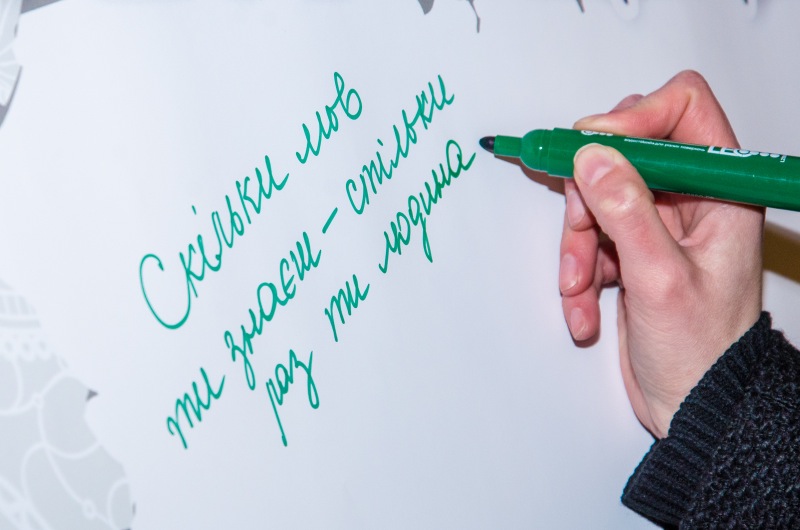 Скільки мов
ти знаєш – стільки
раз ти людина